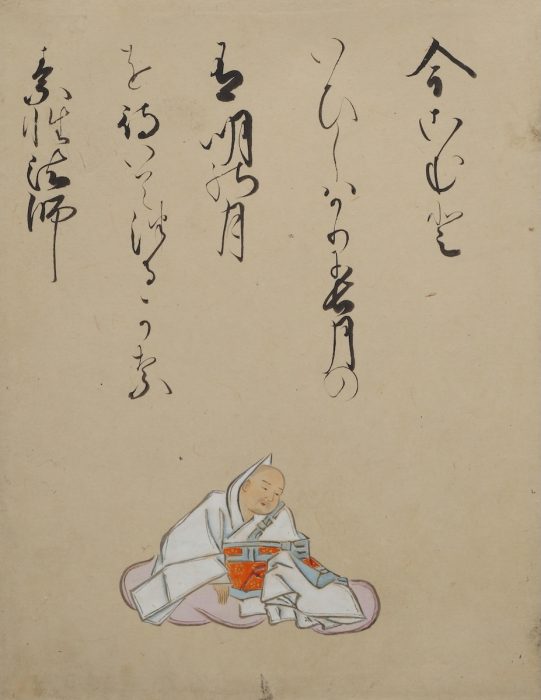 今こむと
いひしはかりに長月の
有明の月
を待いてつるかな
素性法師